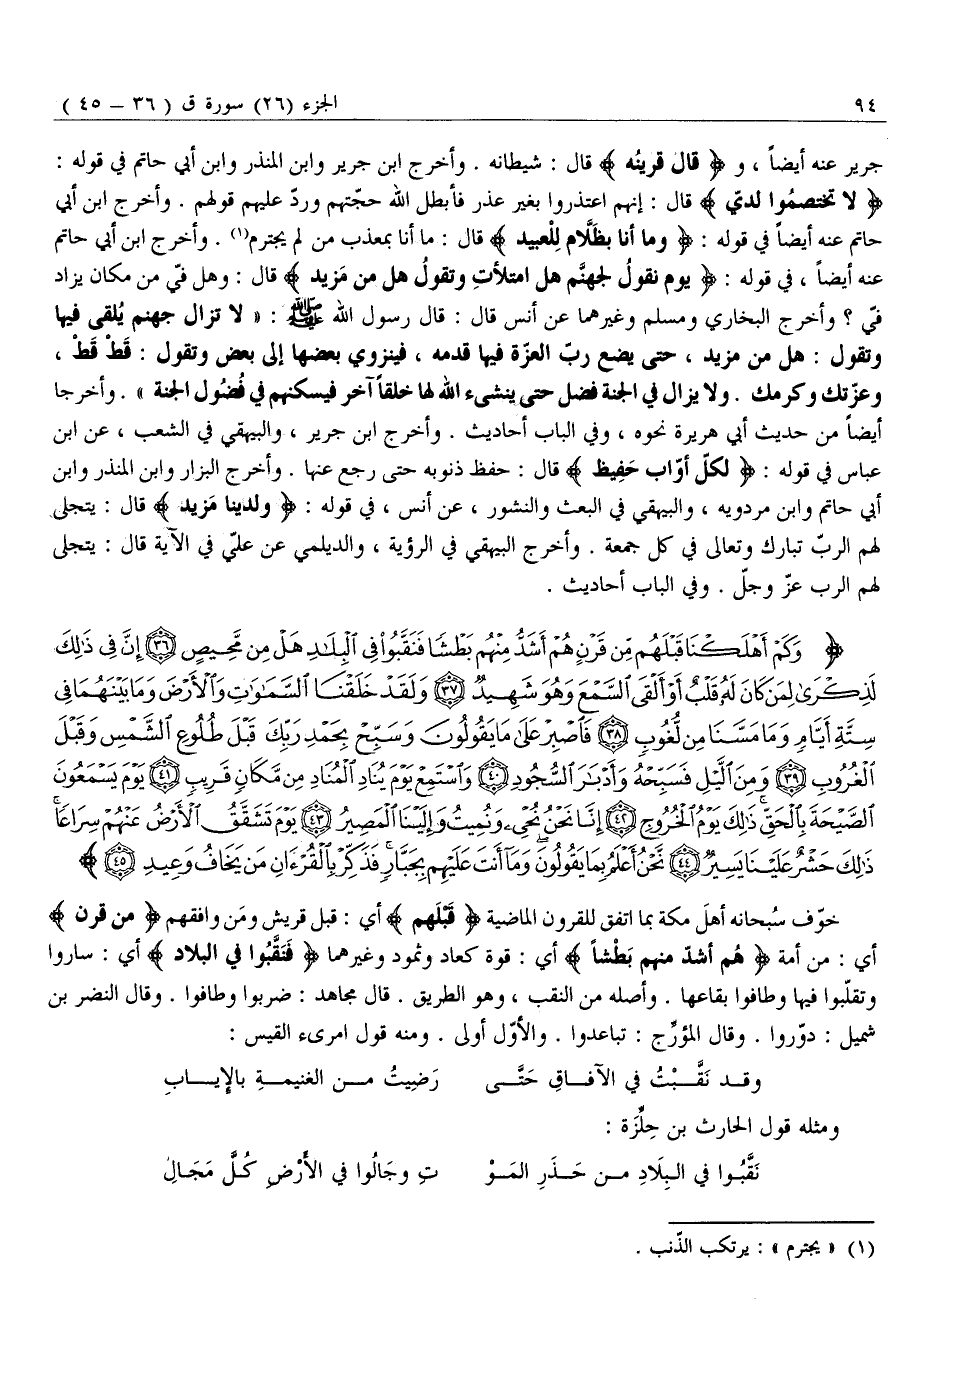 ٩٤ الجزء (٢٦) سورة ق ( ٣٦ – ٤٥ )
جرير عنه أيضاً ، و ﴿ قال قرينُه ﴾ قال : شيطانه . وأخرج ابن جرير وابن المنذر وابن أبي حاتم في قوله :
﴿ لا تختصمُوا لديّ ﴾ قال : إنهم اعتذروا بغير عذر فأبطل الله حجّتهم وردّ عليهم قولهم . وأخرج ابن أبي
حاتم عنه أيضاً في قوله : ﴿ وما أنا بظَلَّام لِلْعبيد ﴾ قال : ما أنا بمعذب من لم يجترم(١) . وأخرج ابن أبي حاتم
عنه أيضاً ، في قوله : ﴿ يوم نقولُ لجهنَّم هل امتلأتِ وتقولُ هل من مَزيد ﴾ قال : وهل فيّ من مكان يزاد
فيّ ؟ وأخرج البخاري ومسلم وغيرهما عن أنس قال : قال رسول الله ﷺ : « لا تزال جهنم يُلقى فيها
وتقول : هل من مزيد ، حتى يضع ربّ العزّة فيها قدمه ، فينزوي بعضها إلى بعض وتقول : قَطْ قَطْ ،
وعزّتك وكرمك . ولا يزال في الجنة فضل حتى ينشىء الله لها خلقاً آخر فيسكنهم في فُضُول الجنة » . وأخرجا
أيضاً من حديث أبي هريرة نحوه ، وفي الباب أحاديث . وأخرج ابن جرير ، والبيهقي في الشعب ، عن ابن
عباس في قوله : ﴿ لكلّ أوّاب حَفِيظ ﴾ قال : حفظ ذنوبه حتى رجع عنها . وأخرج البزار وابن المنذر وابن
أبي حاتم وابن مردويه ، والبيهقي في البعث والنشور ، عن أنس ، في قوله : ﴿ ولدينا مَزيد ﴾ قال : يتجلى
لهم الربّ تبارك وتعالى في كل جمعة . وأخرج البيهقي في الرؤية ، والديلمي عن عليّ في الآية قال : يتجلى
لهم الرب عزّ وجلّ . وفي الباب أحاديث .
﴿ وَكَمْ أَهْلَكْنَا قَبْلَهُم مِّن قَرْنٍ هُمْ أَشَدُّ مِنْهُم بَطْشًا فَنَقَّبُوا۟ فِى ٱلْبِلَـٰدِ هَلْ مِن مَّحِيصٍ ٣٦ إِنَّ فِى ذَٰلِكَ
لَذِكْرَىٰ لِمَن كَانَ لَهُۥ قَلْبٌ أَوْ أَلْقَى ٱلسَّمْعَ وَهُوَ شَهِيدٌ ٣٧ وَلَقَدْ خَلَقْنَا ٱلسَّمَـٰوَٰتِ وَٱلْأَرْضَ وَمَا بَيْنَهُمَا فِى
سِتَّةِ أَيَّامٍ وَمَا مَسَّنَا مِن لُّغُوبٍ ٣٨ فَٱصْبِرْ عَلَىٰ مَا يَقُولُونَ وَسَبِّحْ بِحَمْدِ رَبِّكَ قَبْلَ طُلُوعِ ٱلشَّمْسِ وَقَبْلَ
ٱلْغُرُوبِ ٣٩ وَمِنَ ٱلَّيْلِ فَسَبِّحْهُ وَأَدْبَـٰرَ ٱلسُّجُودِ ٤٠ وَٱسْتَمِعْ يَوْمَ يُنَادِ ٱلْمُنَادِ مِن مَّكَانٍ قَرِيبٍ ٤١ يَوْمَ يَسْمَعُونَ
ٱلصَّيْحَةَ بِٱلْحَقِّ ۚ ذَٰلِكَ يَوْمُ ٱلْخُرُوجِ ٤٢ إِنَّا نَحْنُ نُحْىِۦ وَنُمِيتُ وَإِلَيْنَا ٱلْمَصِيرُ ٤٣ يَوْمَ تَشَقَّقُ ٱلْأَرْضُ عَنْهُمْ سِرَاعًا ۚ
ذَٰلِكَ حَشْرٌ عَلَيْنَا يَسِيرٌ ٤٤ نَّحْنُ أَعْلَمُ بِمَا يَقُولُونَ ۖ وَمَآ أَنتَ عَلَيْهِم بِجَبَّارٍ ۖ فَذَكِّرْ بِٱلْقُرْءَانِ مَن يَخَافُ وَعِيدِ ٤٥ ﴾
خوّف سُبحانه أهلَ مكة بما اتفق للقرون الماضية ﴿ قَبْلَهم ﴾ أي : قبل قريش ومَن وافقهم ﴿ من قرن ﴾
أي : من أمة ﴿ هُم أشدّ منهم بَطْشاً ﴾ أي : قوة كعاد وثمود وغيرهما ﴿ فَنَقَّبُوا في البلاد ﴾ أي : ساروا
وتقلّبوا فيها وطافوا بقاعها . وأصله من النقب ، وهو الطريق . قال مجاهد : ضربوا وطافوا . وقال النضر بن
شميل : دوّروا . وقال المؤرِّج : تباعدوا . والأوّل أولى . ومنه قول امرىء القيس :
وقـد نَقَّـبْتُ في الآفـاقِ حَتَّـى رَضِيتُ مـن الغنيمـةِ بالإيـابِ
ومثله قول الحارث بن حِلِّزَة :
نَقَّبُوا في البِلَادِ مـن حَـذَرِ المَوْ تِ وجَالُوا في الأَرْضِ كُلَّ مَجَالِ
(١) « يجترم » : يرتكب الذّنب .